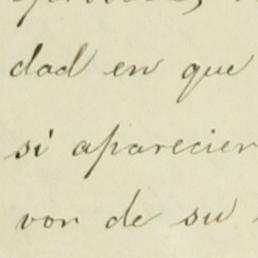 dad en que
si aparecier
von de su